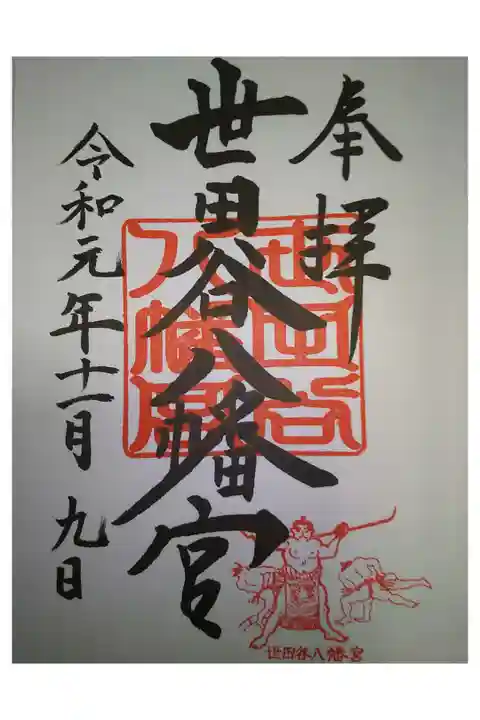 奉拝
世田谷八幡宮
令和元年十一月九日
世田谷八幡宮
世田谷八幡宮